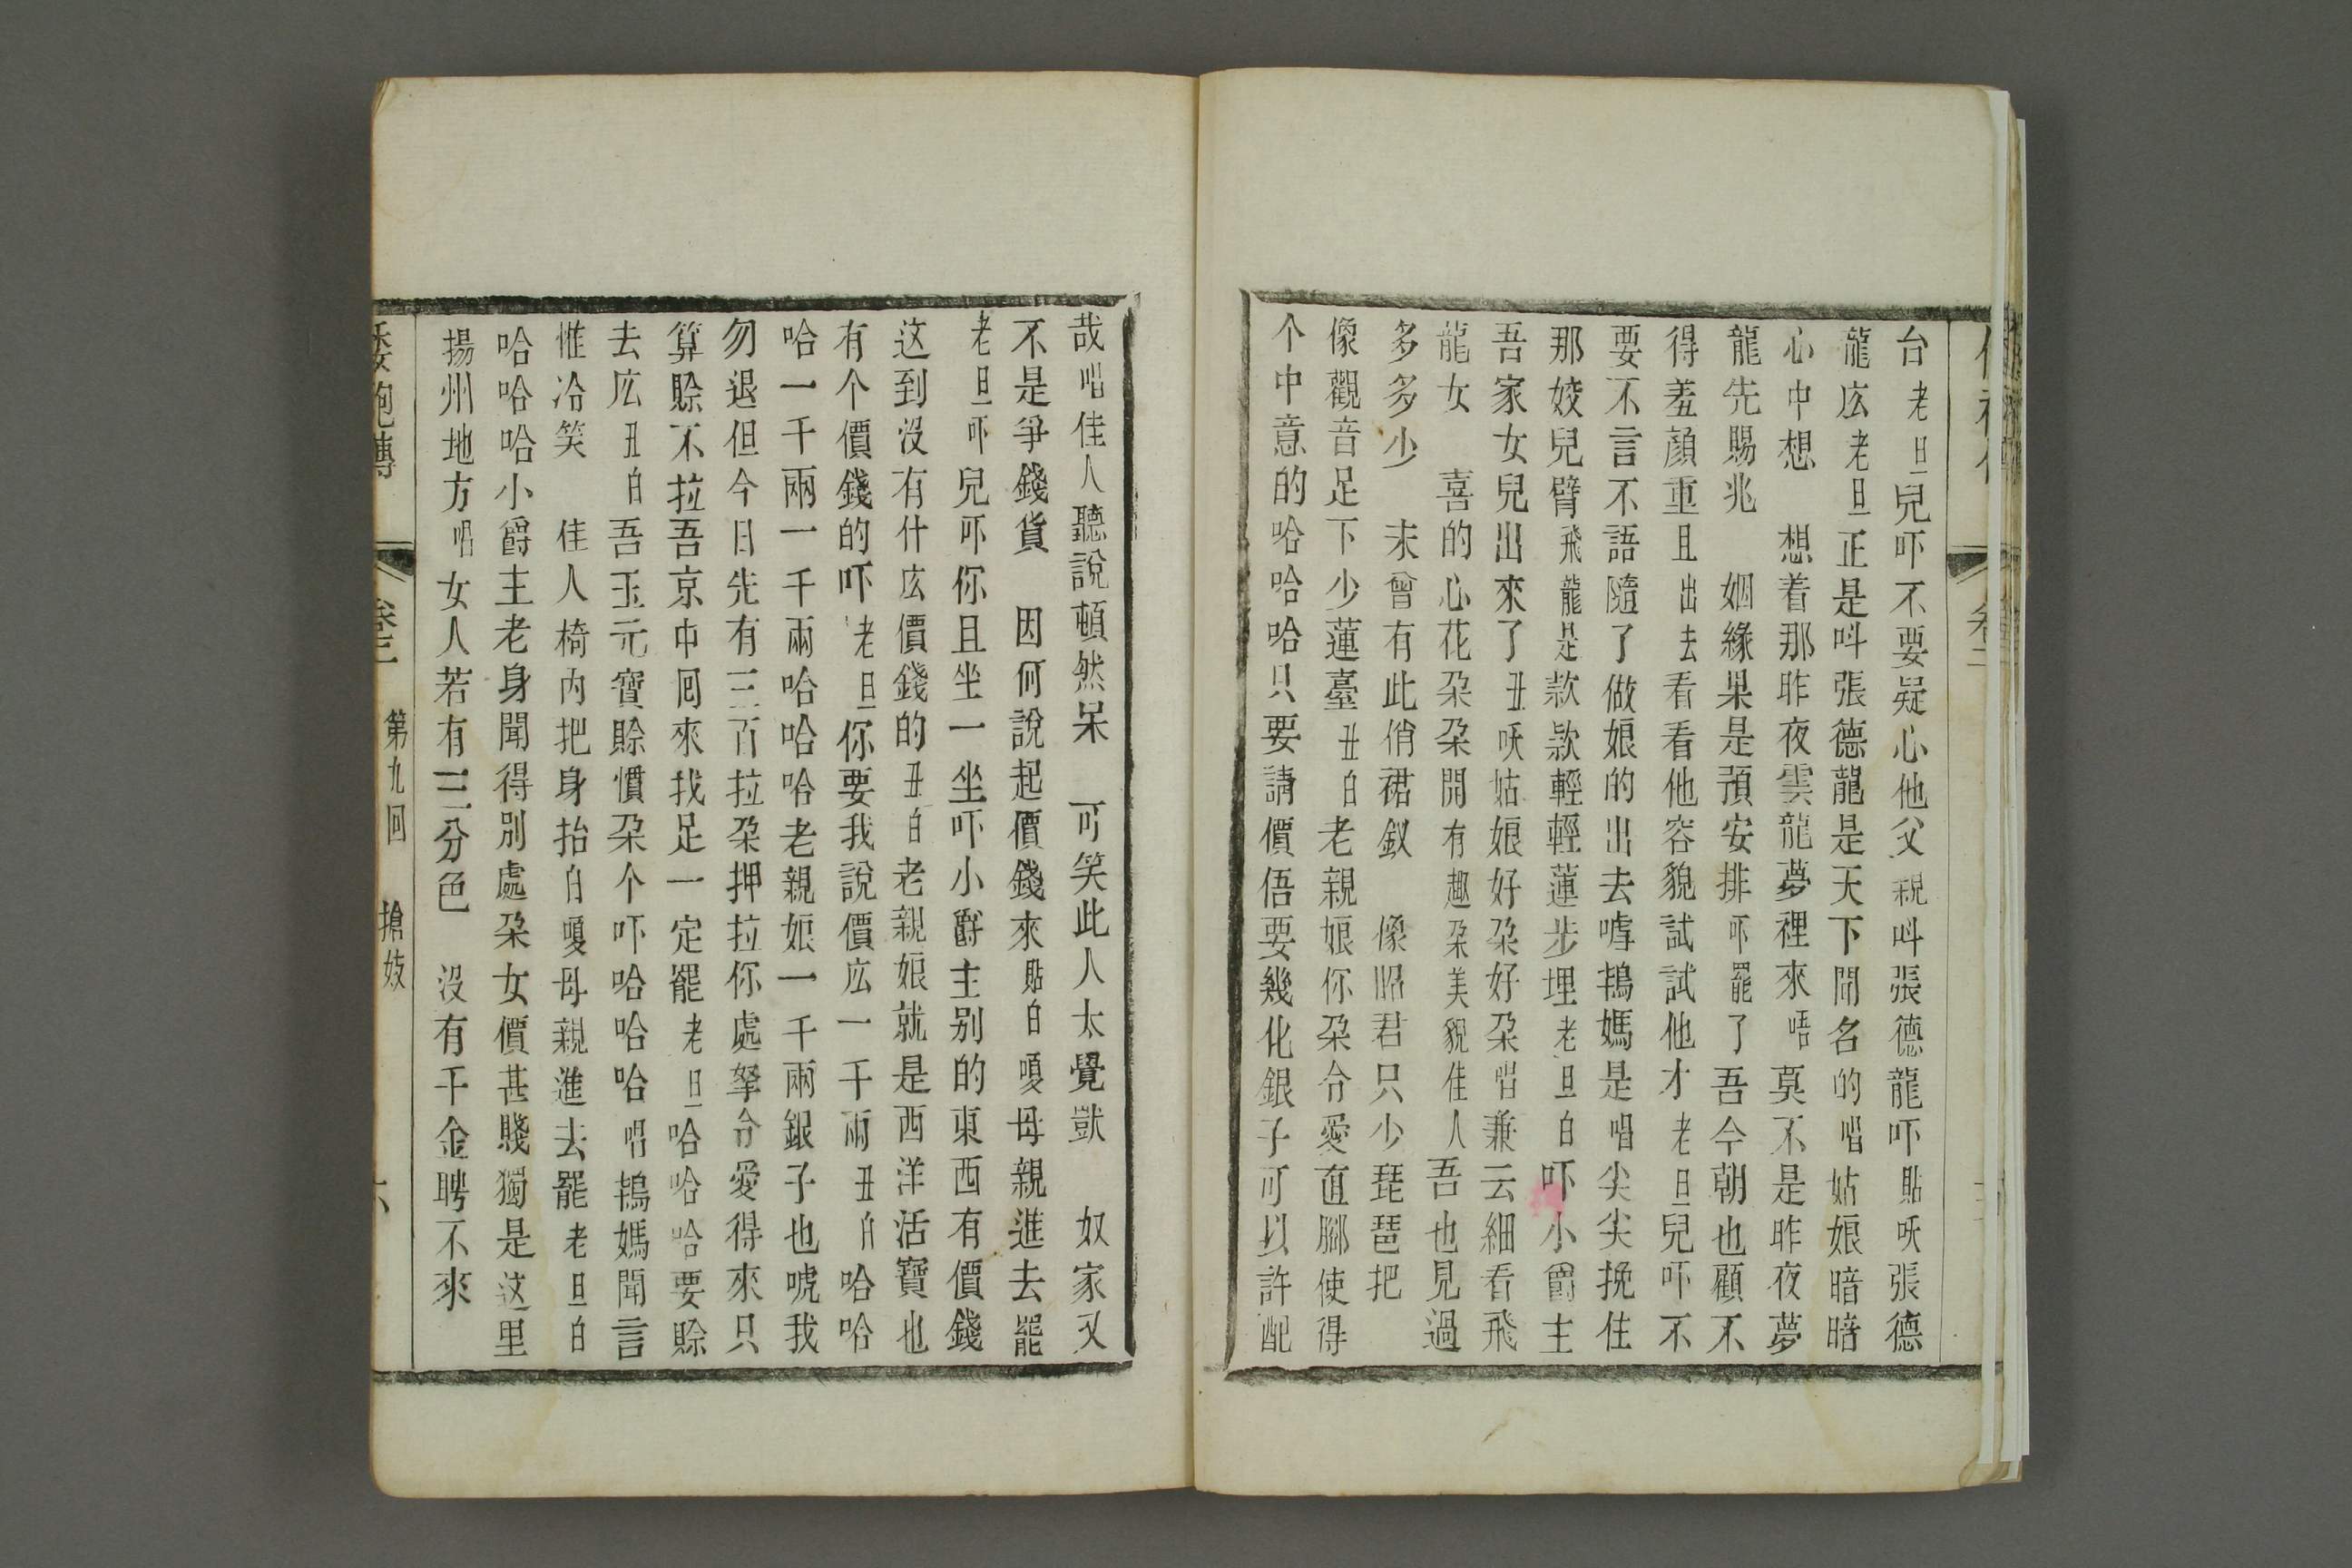 台老旦兒吓不要疑心他父親呌張德龍吓貼呋張德
龍庅老旦正是呌張德龍是天下聞名的唱姑娘暗暗
心中想　想着那昨夜雲龍夢裡來唔莫不是昨夜夢
龍先賜兆　姻緣果是預安排吓罷了吾今朝也顧不
得羞顏重且出去看看他容貌試試他才老旦兒吓不
要不言不語隨了做娘的出去嘑鴇媽是唱尖尖挽住
那姣兒臂飛龍是款款輕輕蓮步埋老旦白吓小爵主
吾家女兒出來了丑呋姑娘好朶好朶唱兼云細看飛
龍女　喜的心花朶朶開有趣朶美貌佳人吾也見過
多多少　未曾有此俏裙釵　像昭君只少琵琶把
像觀音足下少蓮臺丑白老親娘你朶合愛直腳使得
个中意的哈哈哈只要請價俉要幾化銀子可以許配
哉唱佳人聽說頓然呆　可笑此人太覺獃　奴家又
不是爭錢貨　因何說起價錢來貼白嗄母親進去罷
老旦吓兒吓你且坐一坐吓小爵主别的東西有價錢
这到没有什庅價錢的丑白老親娘就是西洋活寶也
有个價錢的吓老旦你要我說價庅一千兩丑白哈哈
哈一千兩一千兩哈哈哈老親娘一千兩銀子也唬我
勿退但今日先有三百拉朶押拉你處拏合愛得來只
算賒不拉吾京中囘來找足一定罷老旦哈哈哈要賒
去庅丑白吾玉元寶賒慣朶个吓哈哈哈唱鴇媽聞言
惟冷笑　佳人椅內把身抬白嗄母親進去罷老旦白
哈哈哈小爵主老身聞得別處朶女價甚賤獨是这里
揚州地方唱女人若有三分色　没有千金聘不來
倭袍傳　卷二　第九回　搶妓　六